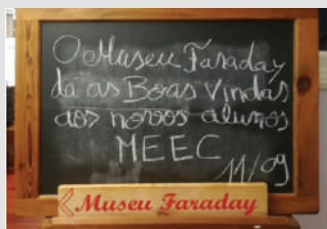 O Museu Faraday
dá as Boas Vindas
aos novos alunos
MEEC
11/09
Museu Faraday